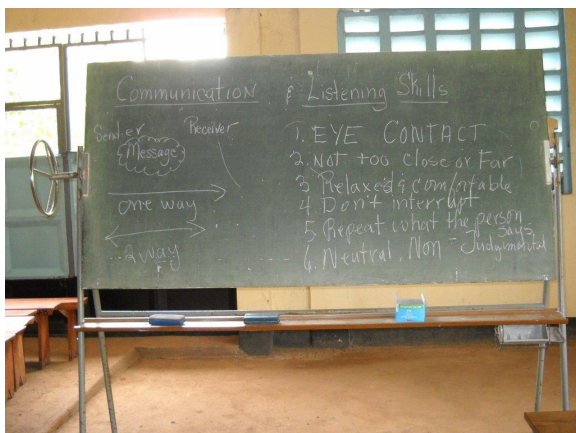 Communication & Listening Skills
Sender Receiver
Message
one way
2 way
1. EYE CONTACT
2. Not too close or Far
3 Relaxed & comfortable
4 Don't interrupt
5 Repeat what the person
says
6. Neutral, Non-Judgmental